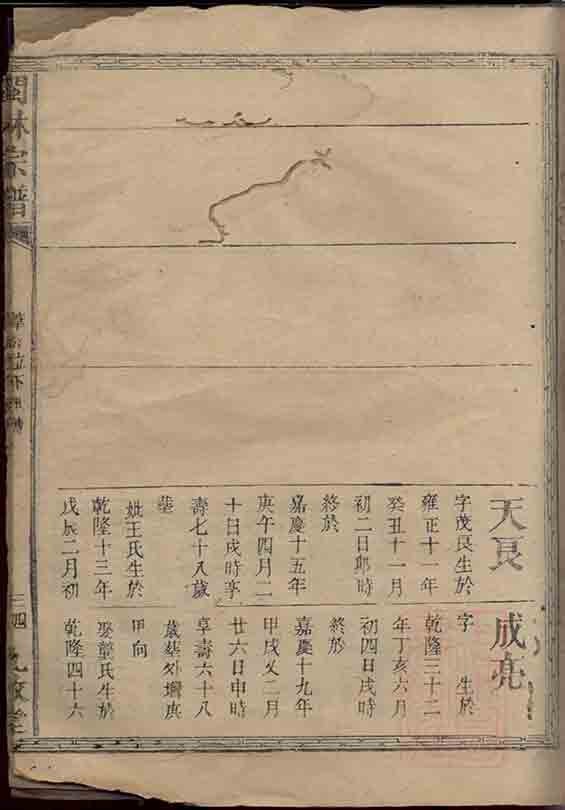 天良
字茂良生於
雍正十一年
癸丑十一月
初二日卯時
終於
嘉慶十五年
庚午四月二
十日戌時享
壽七十八歲
葬
妣王氏生於
乾隆十三年
戊辰二月初
成亮
字 生於
乾隆三十二
年丁亥六月
初四日戌時
終於
嘉慶十九年
甲戌又二月
廿六日申時
享壽六十八
歲葬外壩庚
甲向
娶章氏生於
乾隆四十六
閩林宗譜